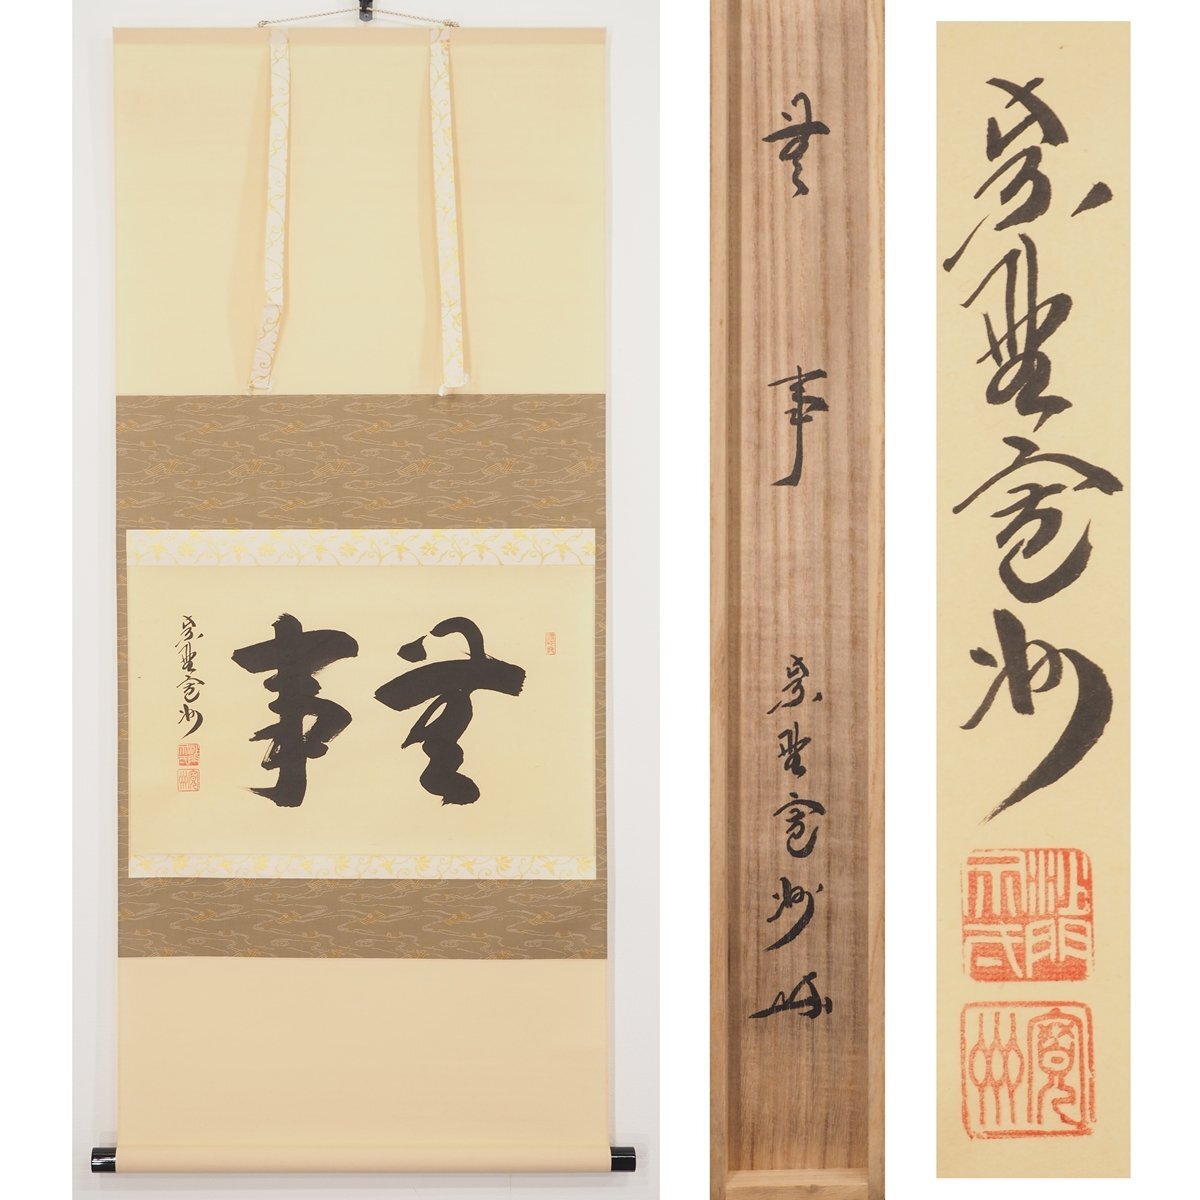 無事
紫野寛州
無事
紫野寛州
紫野寛州
沙門
寛州